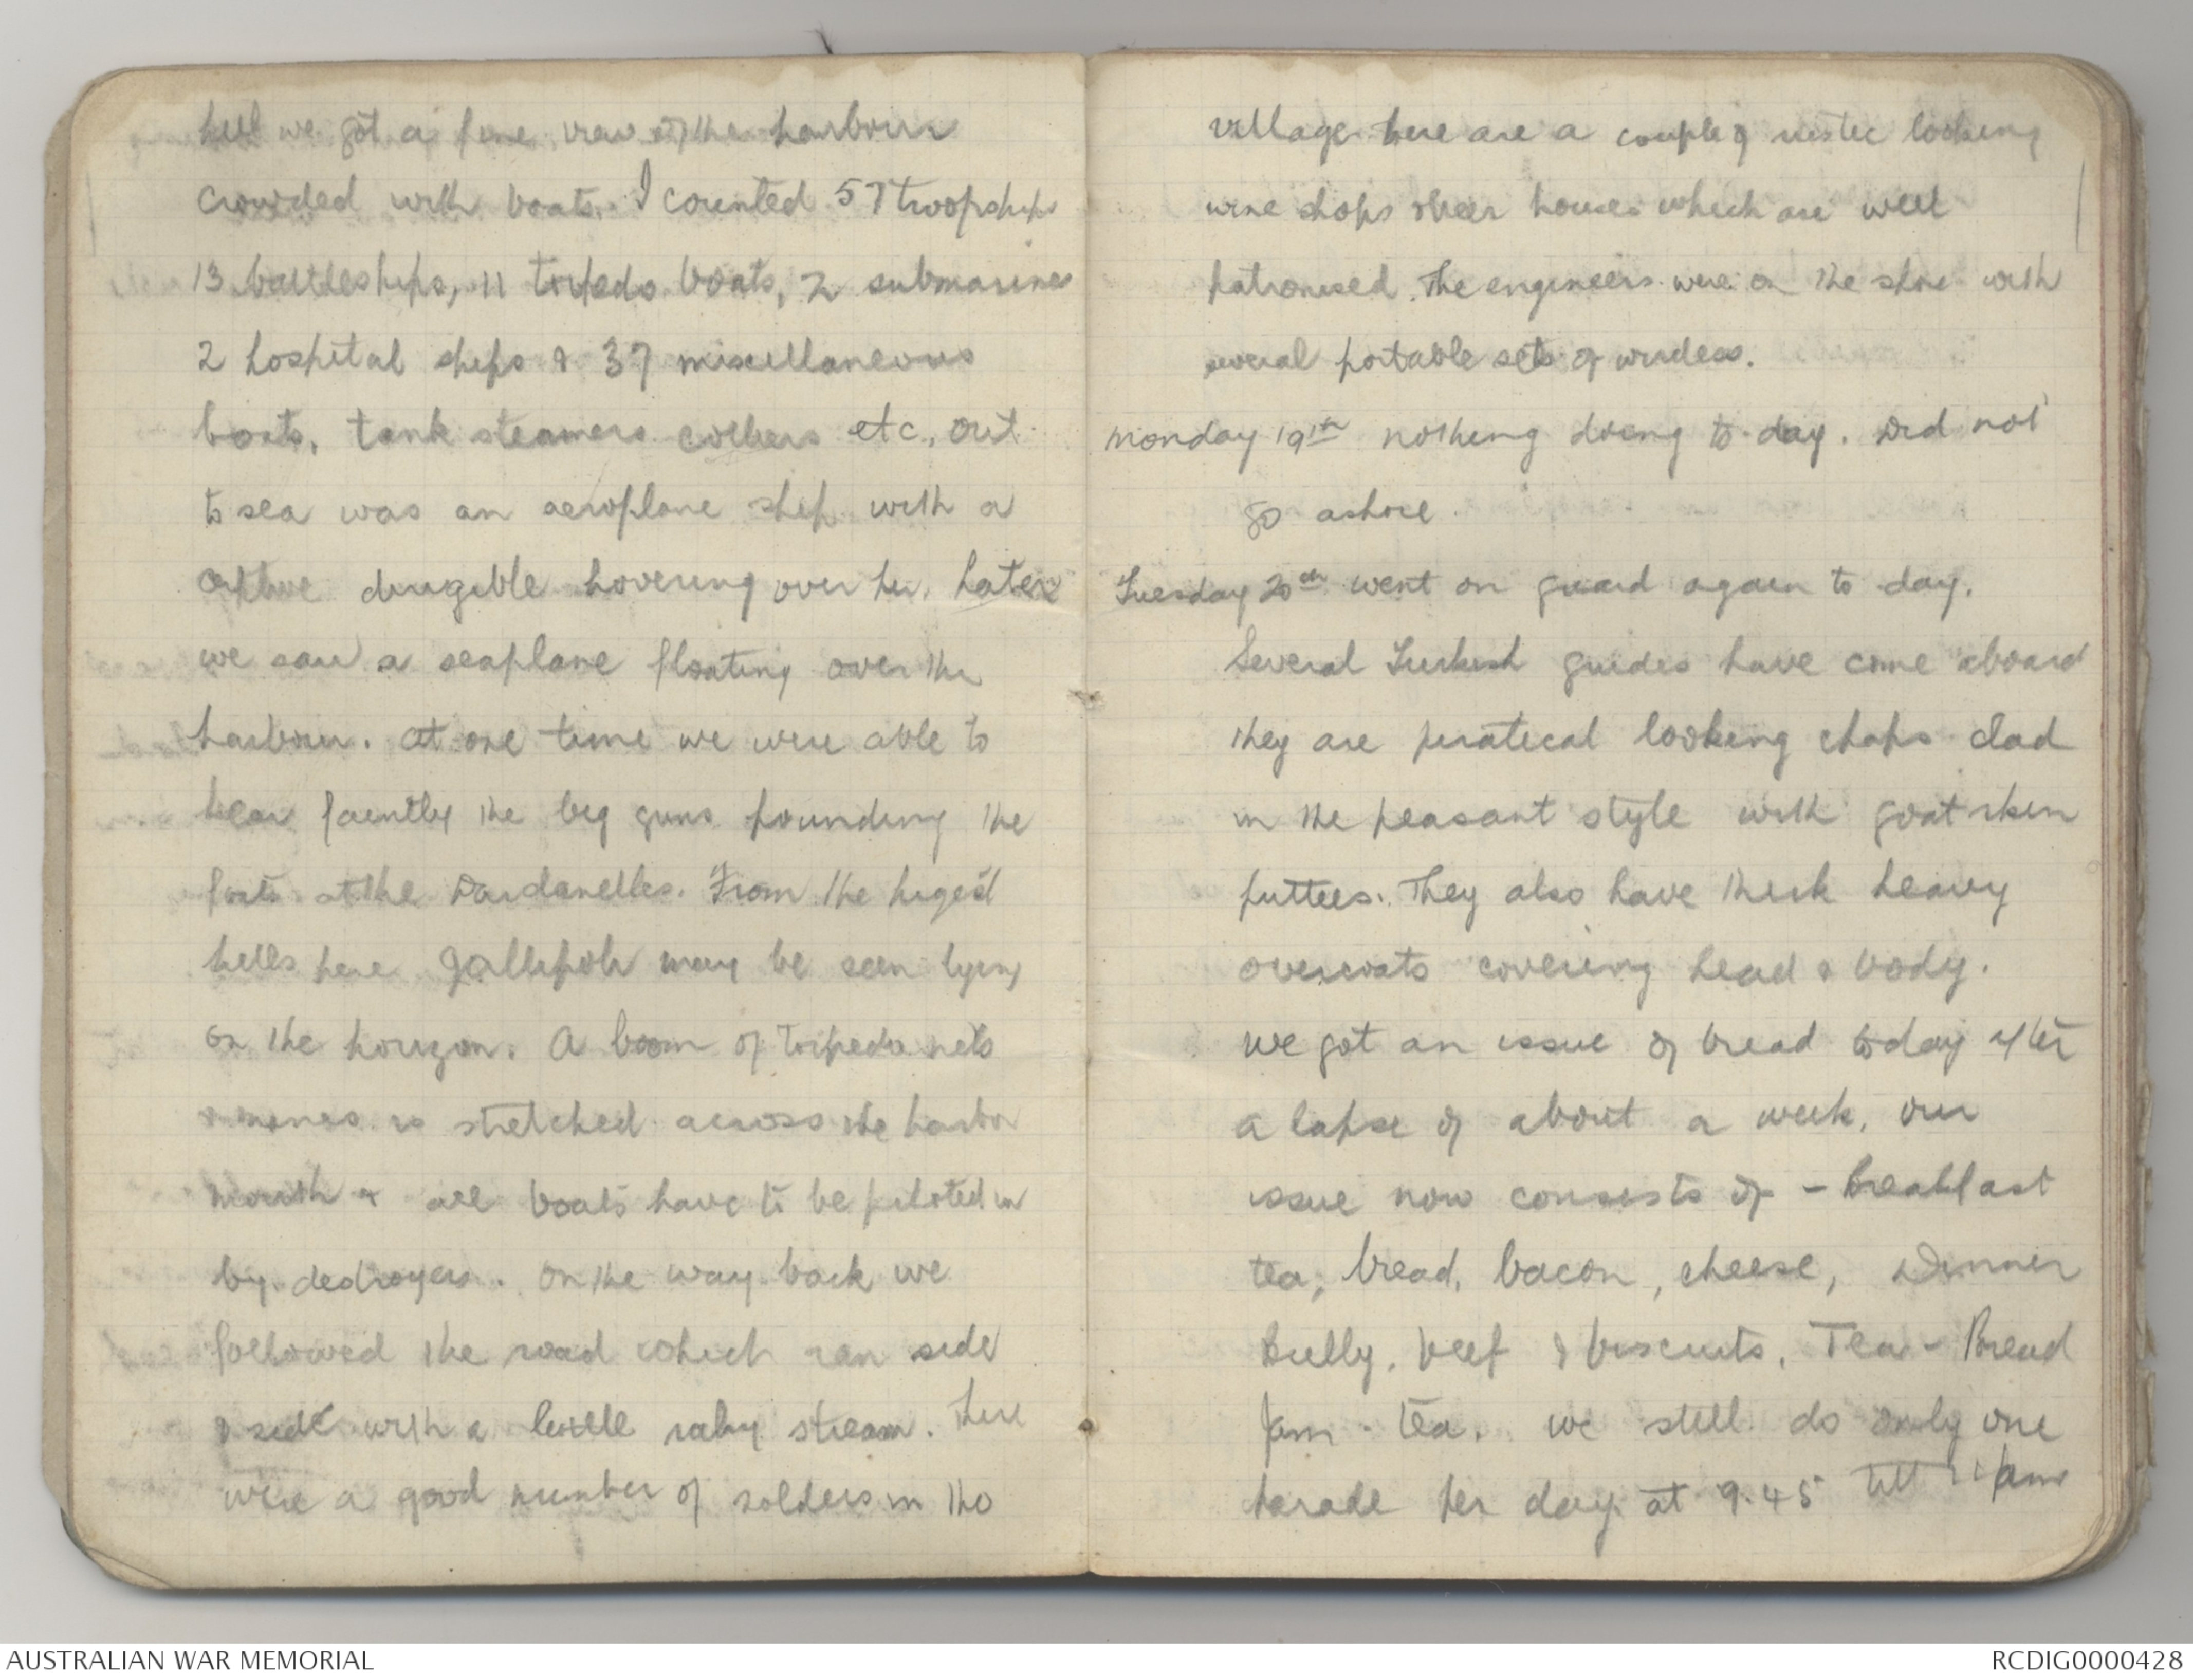 hill we got a fine view of the harbour
crowded with boats. I counted 57 troopships
13 battleships, 11 torpedo boats, 2 submarines
2 hospital ships & 37 miscellaneous
boats, tank steamers colliers etc, out
to sea was an aeroplane ship with a
captive dirigible hovering over her. Later
we saw a seaplane floating over the
harbour. At one time we were able to
hear faintly the big guns pounding the
forts at the Dardanelles. From the higest
hills here Gallipoli may be seen lying
on the horizon. A boom of torpedo nets
& mines is stretched across the harbor
mouth & all boats have to be piloted in
by destroyers. On the way back we
followed the road which ran side
& side with a little stream. There
were a good number of solders in the
village there are a couple of rustic looking
wine shops & beer houses which are well
patronised. The engineers were on the shore with
several portable sets of wireless.
Monday 19th nothing doing to day. Did not
go ashore.
Tuesday 20th went on guard again to day.
Several Turkish guides have come aboard
they are piratical looking chaps clad
in the peasant style with goat skin
puttees. They also have thick heavy
overcoats covering head & body.
We got an issue of bread today after
a lapse of about a week, our
issue now consists of - Breakfast
tea, bread, bacon, cheese, Dinner
Bully, beef & biscuits, Tea - Bread
Jam - tea. We still do only one
parade per day at 9.45 till 11 am
AUSTRALIAN WAR MEMORIAL
RCDIG0000428